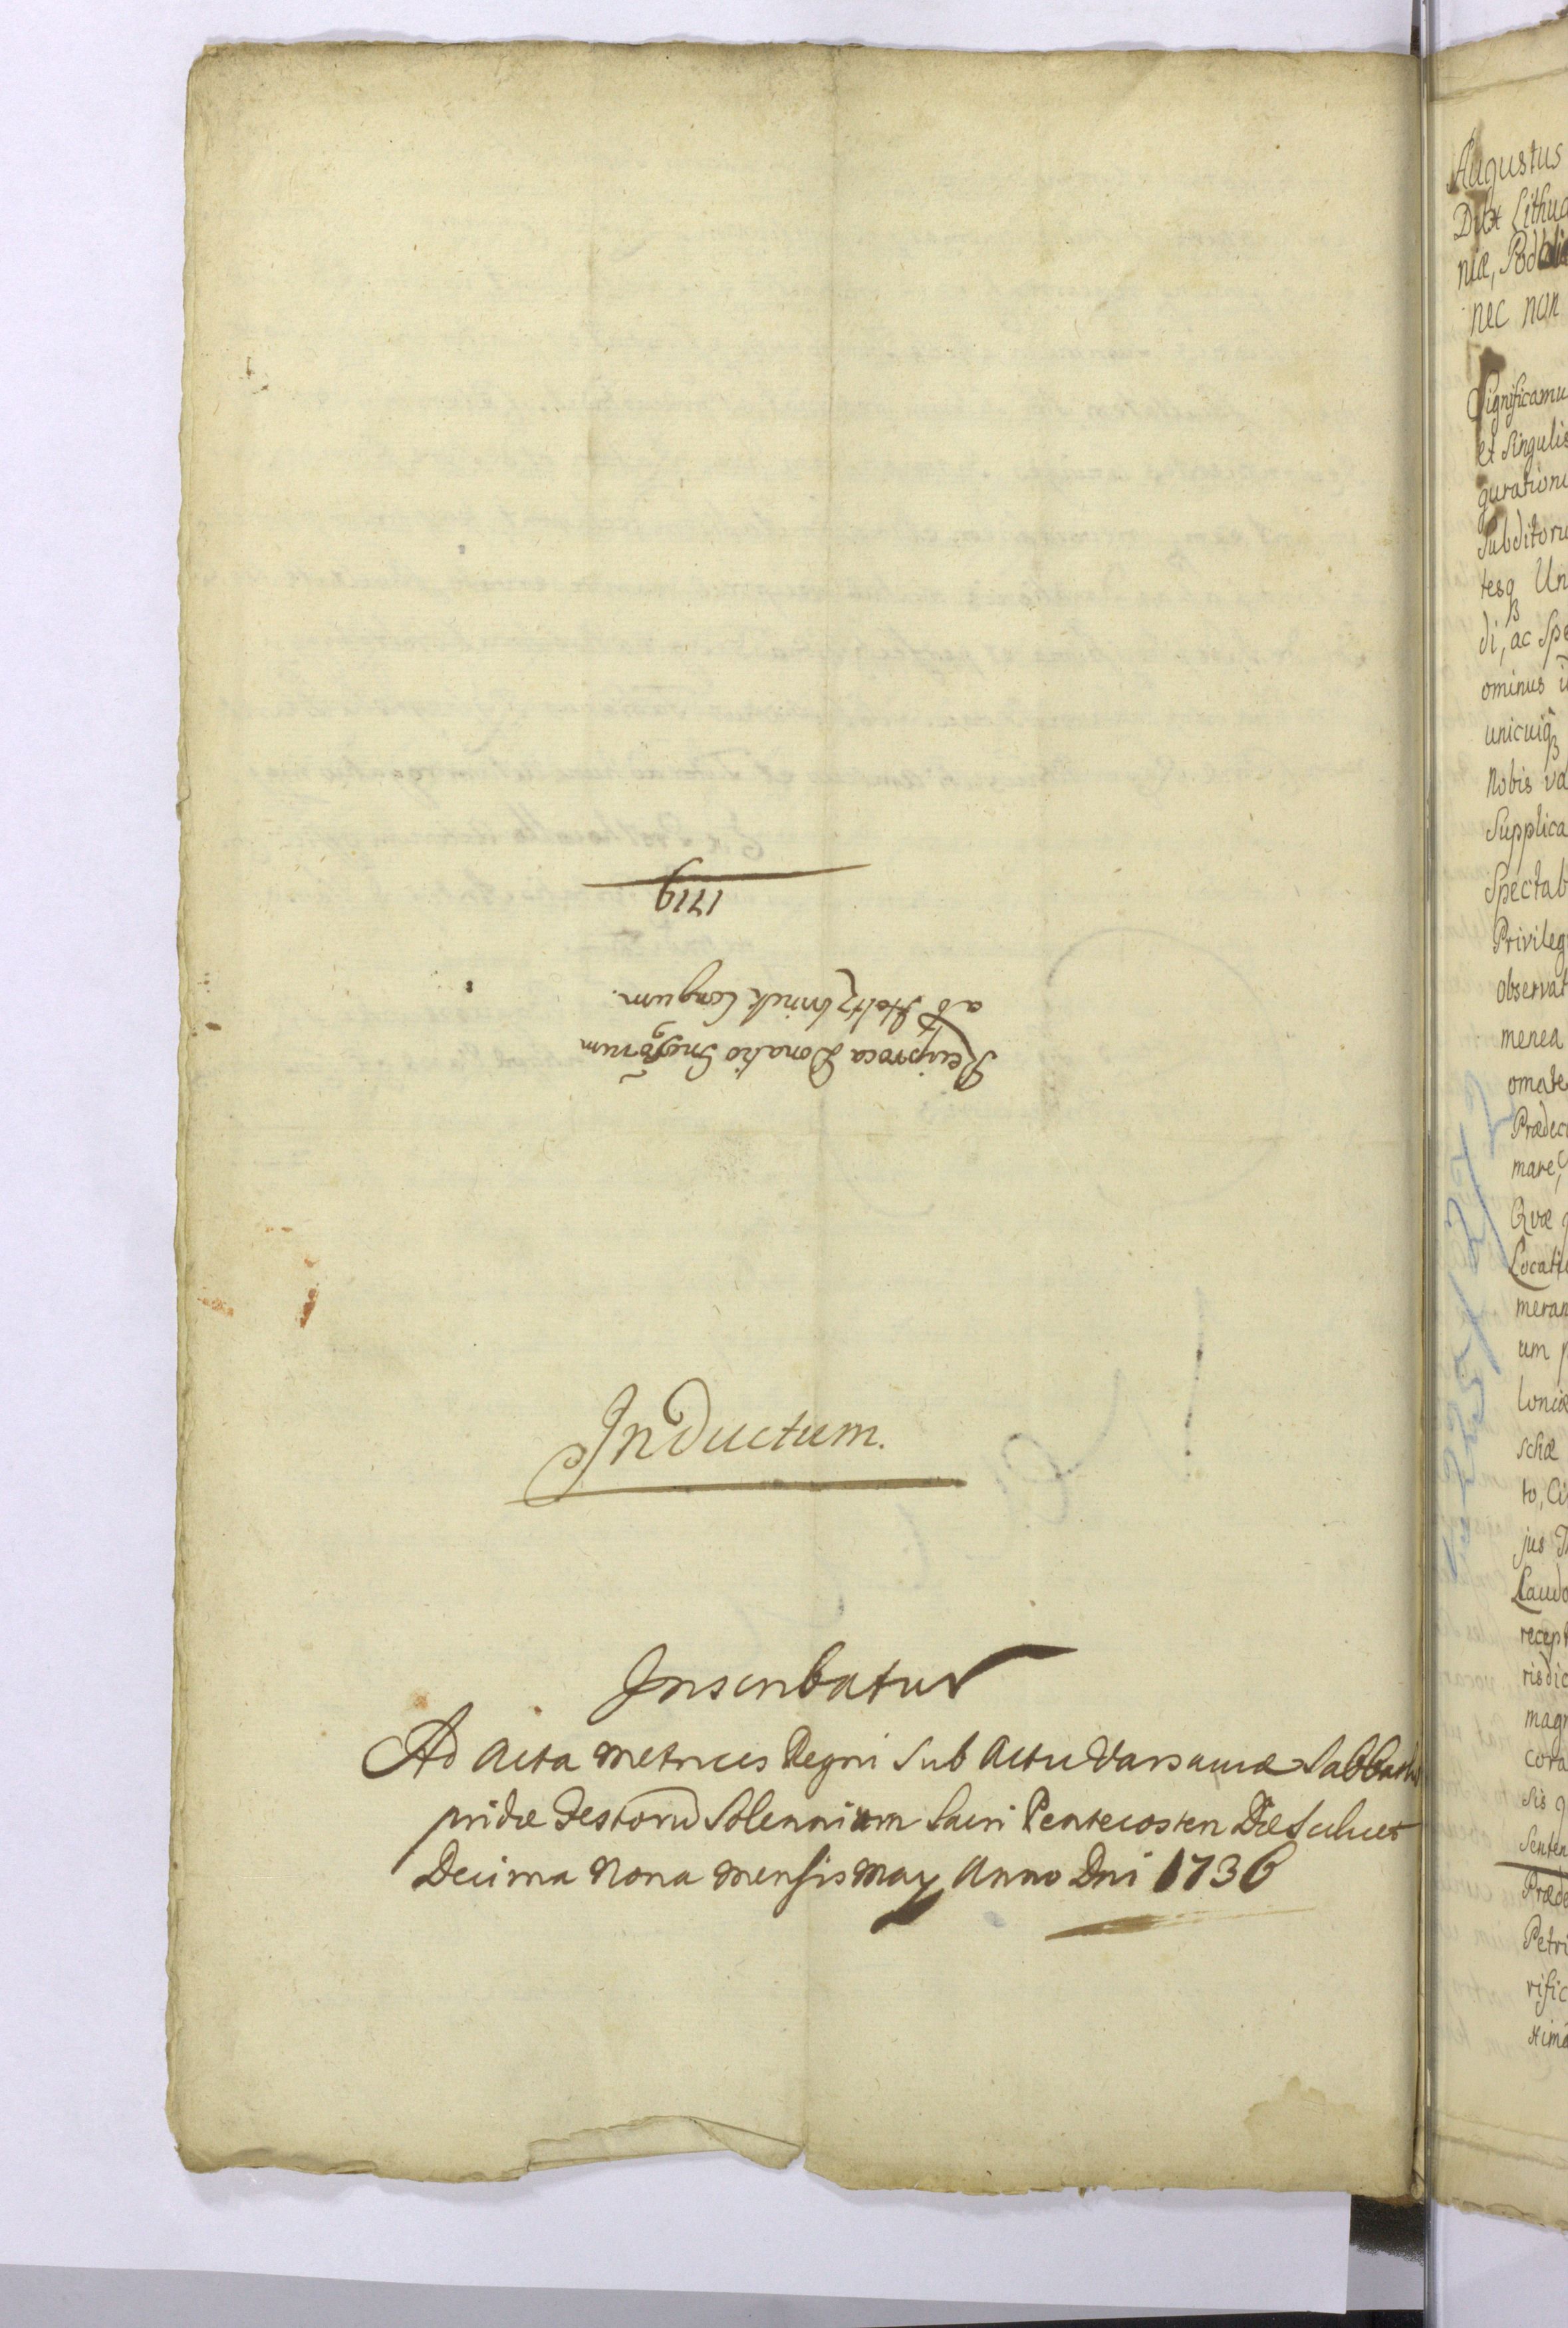 Reciproca Donatio Gnosorum
ab Holtzbrinck Conjugum.
1719
Inductum.
Inscribatur
Ad Acta Metrices Regni Sub Actu Varsaviæ Sabbatho
pridie Festorū Solennium Sacri Pentecosten Die Scilicet
Decima Nona Mensis May Anno Dni 1736
Augustus
Dux Lithua
niæ, Podol
nec non
Significamu
et Singulis
gurationu
Subditoru
tesq Un
di, ac Spe
ominus
unicuiq
Nobis va
Supplica
Spectab
Privileg
observat
menea
omate
Prædec
mare,
Quæ
Locati
meran
um p
loniæ
schæ
to, Ci
jus
Laudo
recept
risdic
magn
cora
sis q
Senten
Præde
Petri
rific
ximâ